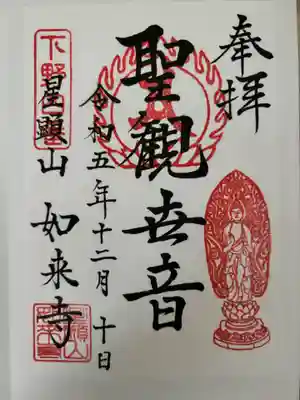 奉拝
聖觀世音
令和五年十二月十日
下野
星顯山 如来寺